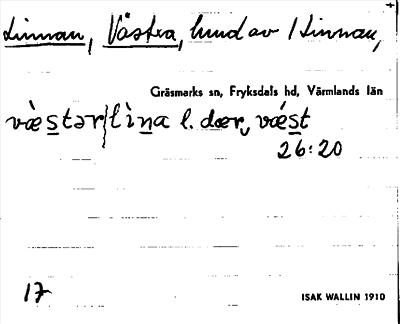 Linnan, Västra, hund av / Linnan,
Gräsmarks sn, Fryksdals hd, Värmlands län
væ̀stər lìna l. dær vǽst
26:20
17
ISAK WALLIN 1910